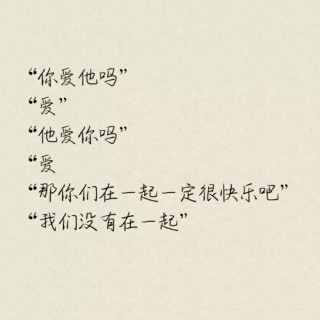 “你爱他吗”
“爱”
“他爱你吗”
“爱
“那你们在一起一定很快乐吧”
“我们没有在一起”